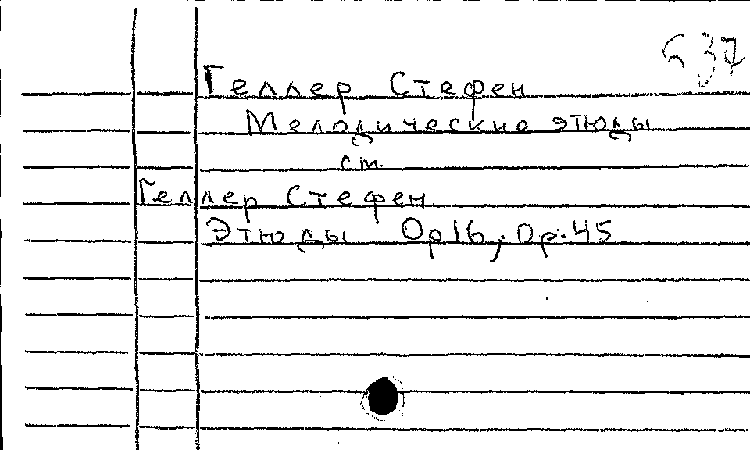 537
Геллер Стефен
Мелодические этюды
см.
Геллер Стефен
Этюды Op16, Op.45